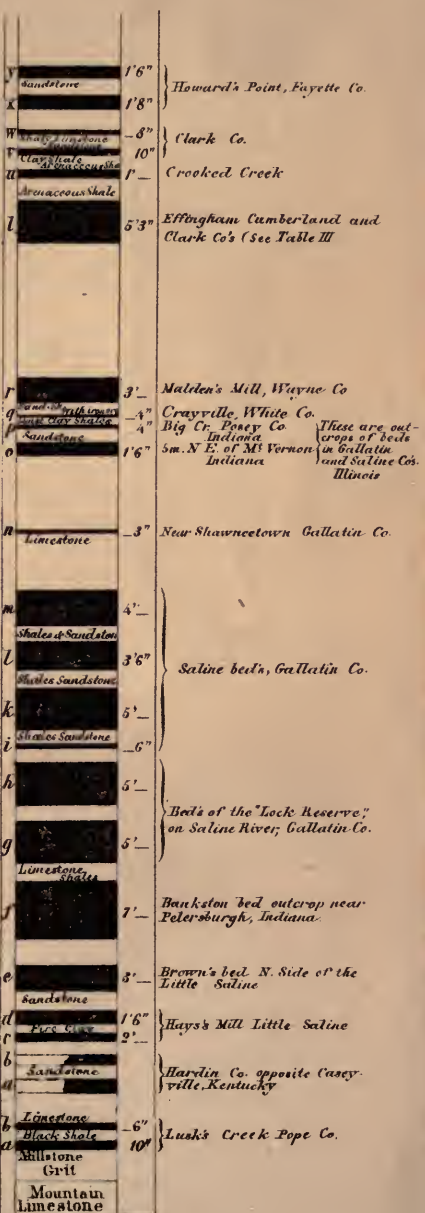 y 1'6"
Sandstone
Howard's Point, Fayette Co.
x 1'8"
w _8"
Shaly Limestone
Clark Co.
v 10"
Clay Shale
Arenaceous Sha
u 1'_ Crooked Creek
Arenaceous Shale
t 5'3" Effingham Cumberland and
Clark Co's (See Table III
r 3'_ Malden's Mill, Wayne Co
q _4" Grayville, White Co.
and Clay Shales
p 4" Big Cr. Posey Co.
Indiana
Sandstone
o 1'6" 5m. N E. of Mt Vernon
Indiana
These are out-
crops of beds
in Gallatin
and Saline Co's.
Illinois
n _3" Near Shawneetown Gallatin Co.
Limestone
m 4'_
Shales & Sandston
l 3'6"
Saline bed's, Gallatin Co.
Shales Sandstone
k 5'_
Shales Sandstone
i _6"
h 5'_
Bed's of the "Lock Reserve,"
on Saline River, Gallatin Co.
g 5'_
Limestone,
Shales
f 7'_ Bankston bed outcrop near
Petersburgh, Indiana.
e 3'_ Brown's bed N. Side of the
Little Saline
Sandstone
d 1'6"
Hays's Mill Little Saline
Fire Clay
c 2'_
b
Sandstone
Hardin Co. opposite Casey-
ville, Kentucky
a
Limestone
b _6"
Black Shale
Lusk's Creek Pope Co.
a 10"
Millstone
Grit
Mountain
Limestone